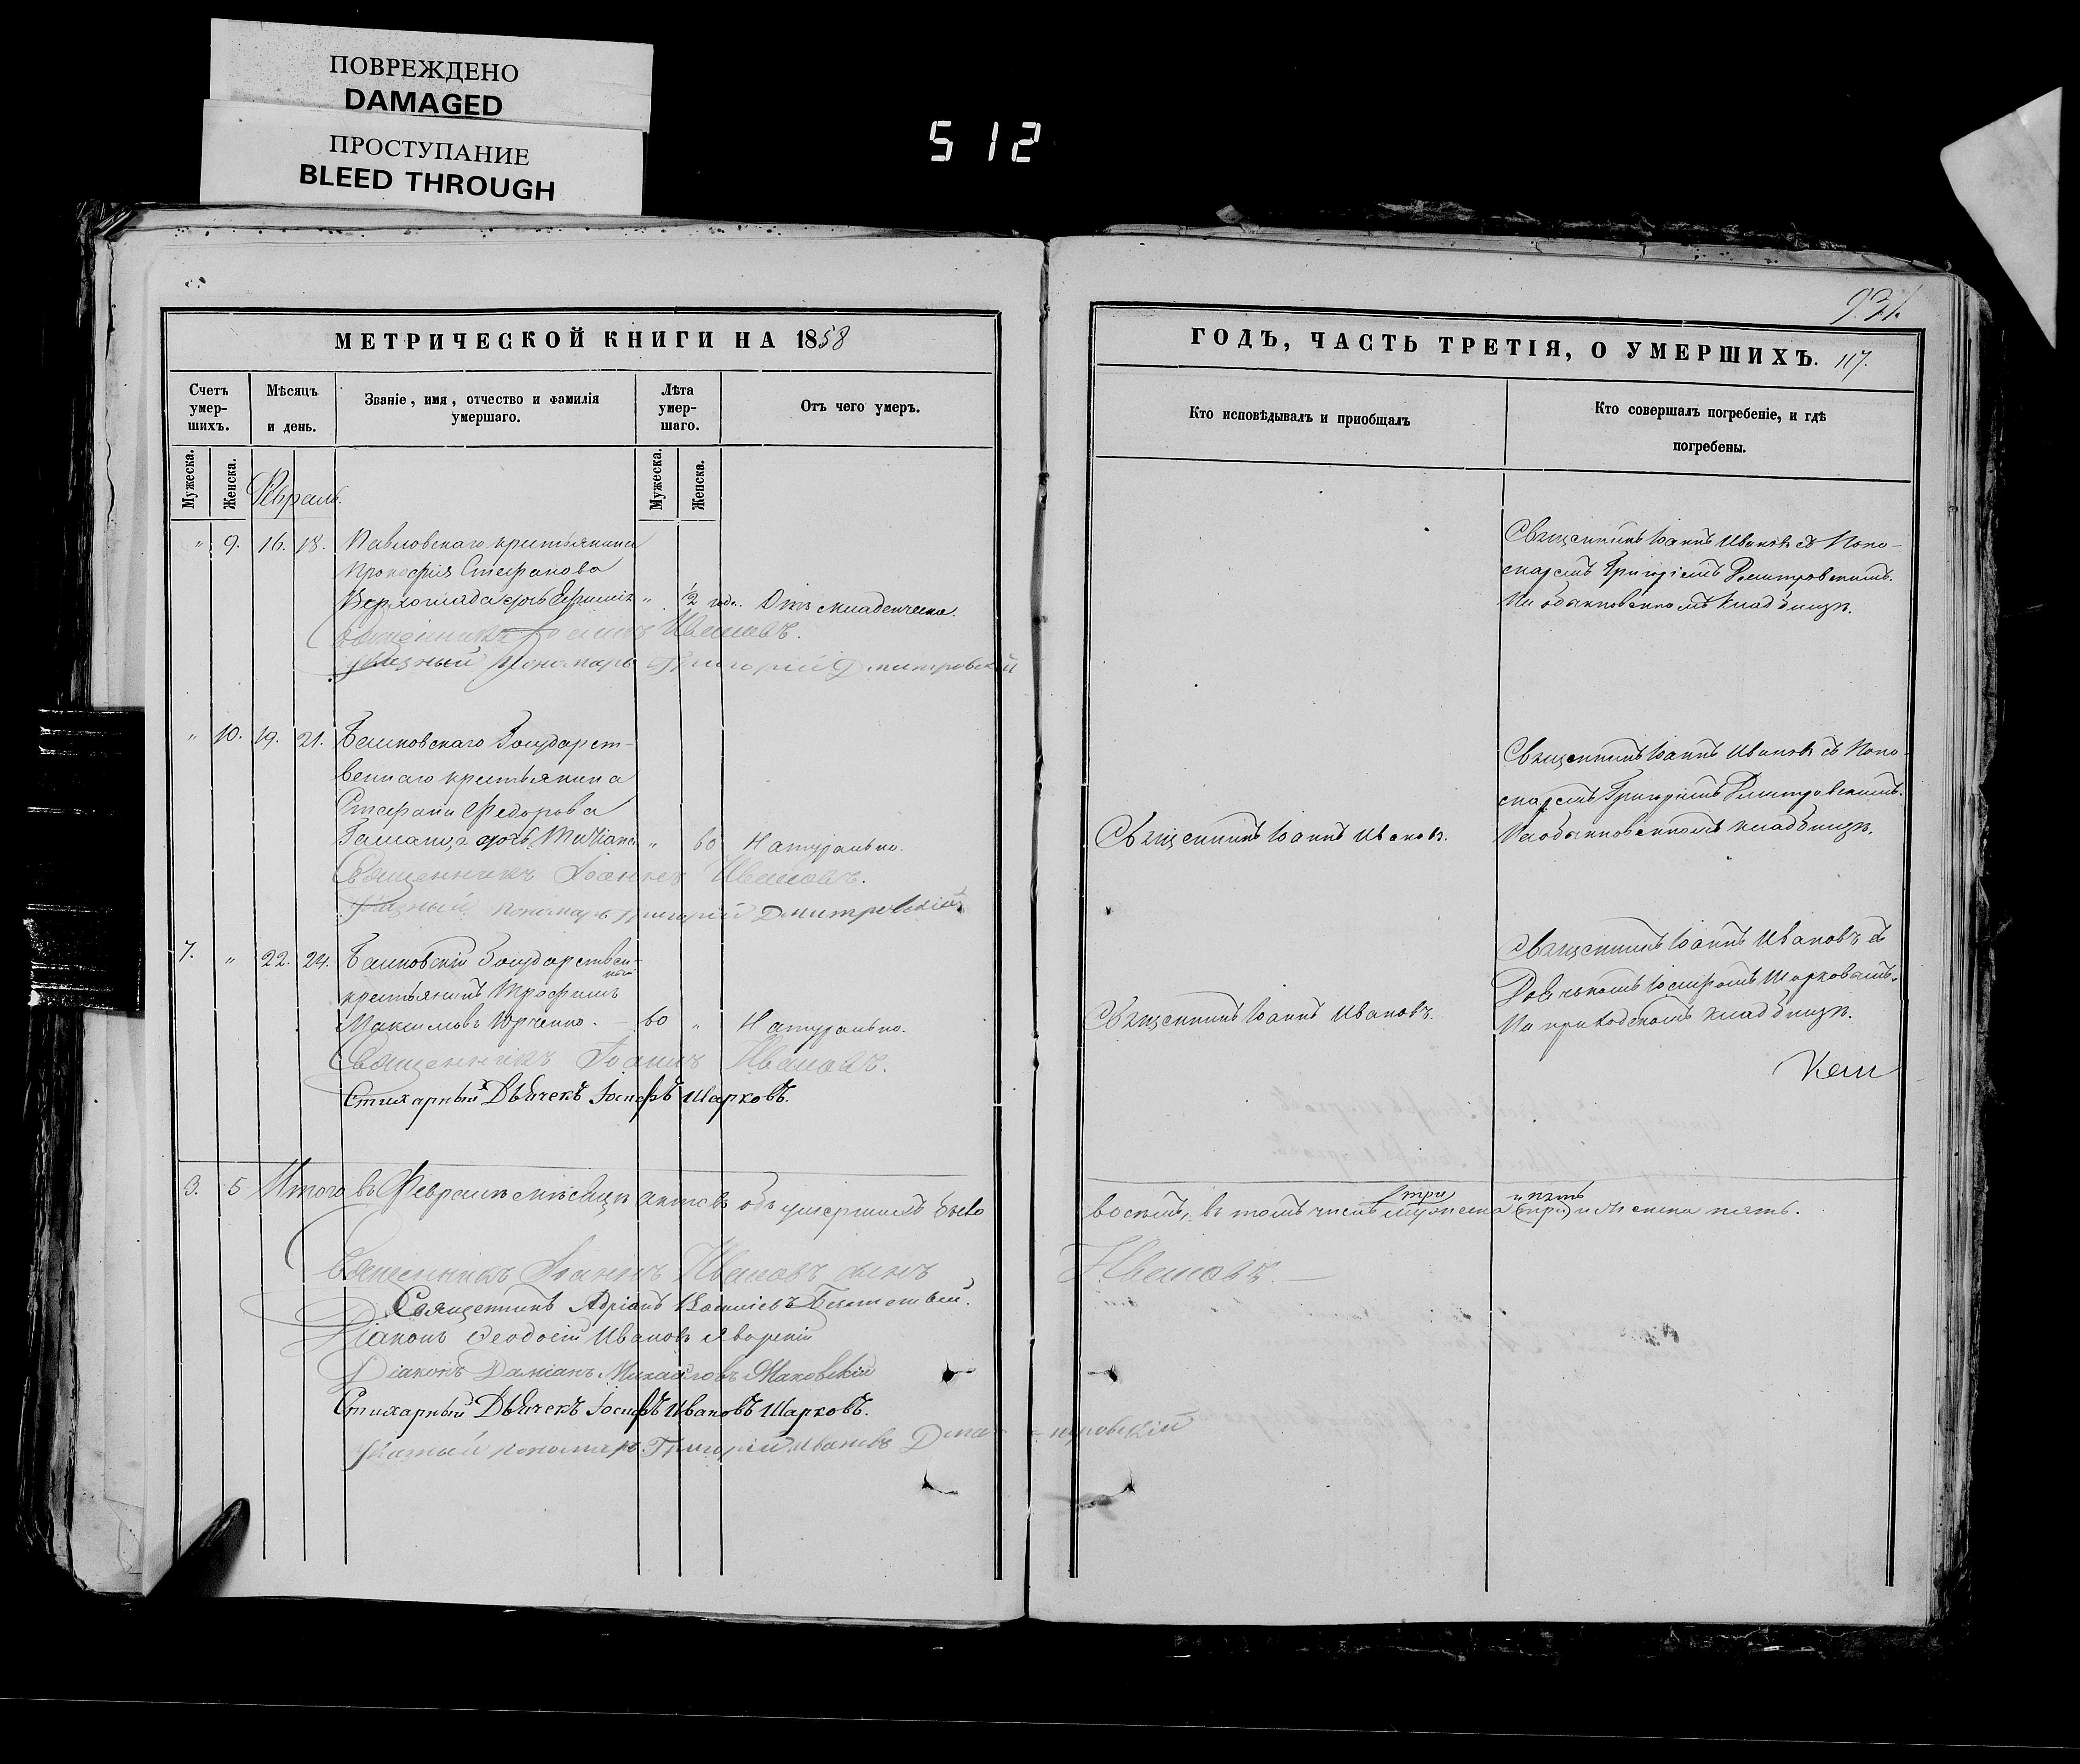 ПОВРЕЖДЕНО
DAMAGED
ПРОСТУПАНИЕ
BLEED THROUGH
512
МЕТРИЧЕСКОЙ КНИГИ НА 1858
Счетъ умер-шихъ.
Мѣсяцъ и день.
Званіе, имя, отчество и фамилія умершаго.
Лѣта умер-шаго.
Отъ чего умеръ.
Мужеска.
Женска.
Мужеска.
Женска.
Февраль.
" 9. 16. 18. Павловскаго крестьянина
Прокофія Стефанова
дочь " 2 года. Отъ младенческа.
Священникъ Іоаннъ Ивановъ.
Пономарь Григорій Дмитровскій
" 10. 19. 21. Государст-
веннаго крестьянина
Стефана Федорова
дочь " 60 Натурально.
Священникъ Іоаннъ Ивановъ.
пономарь Григорій Дмитровскій
7. " 22. 24. Государствен-
ный
крестьянинъ Трофимъ
Максимовъ Юрченко. 60 " Натурально.
Священникъ Іоаннъ Ивановъ.
Стихарный Дьячекъ Іосифъ Шарковъ.
3. 5 Итого въ Февралѣ мѣсяцѣ актовъ объ умершихъ было
Священникъ Іоаннъ Ивановъ
Священникъ Адріанъ
Діаконъ Феодосій Ивановъ Яворскій
Діаконъ Даміанъ Михайловъ Маковскій
Стихарный Дьячекъ Іосифъ Ивановъ Шарковъ.
пономарь Григорій Ивановъ Дми-тровскій
931.
ГОДЪ, ЧАСТЬ ТРЕТІЯ, О УМЕРШИХЪ. 117.
Кто исповѣдывалъ и приобщалъ
Кто совершалъ погребеніе, и гдѣ погребены.
Священникъ Іоаннъ Ивановъ съ Поно-
маремъ Григоріемъ Дмитровскимъ.
На обыкновенномъ кладбищѣ.
Священникъ Іоаннъ Ивановъ съ Поно-
маремъ Григоріемъ Дмитровскимъ.
Священникъ Іоаннъ Ивановъ. На обыкновенномъ кладбищѣ.
Священникъ Іоаннъ Ивановъ съ
Дьячкомъ Іосифомъ Шарковымъ.
Священникъ Іоаннъ Ивановъ. На приходскомъ кладбищѣ.
три и пять
восемь, въ томъ числѣ мужеска (три) и женска пять.
Ивановъ.